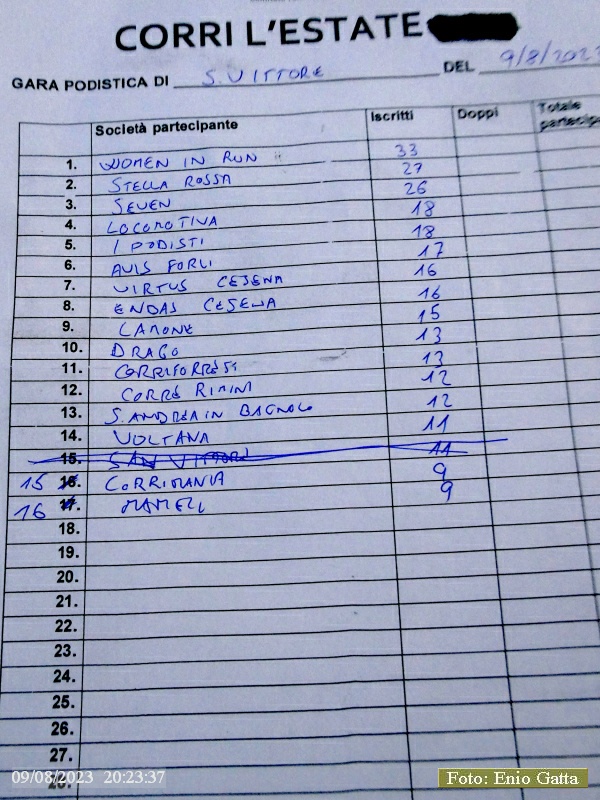 CORRI L'ESTATE
GARA PODISTICA DI S. VITTORE DEL 9/8/2023
Società partecipante Iscritti Doppi Totale partecip
1. WOMEN IN RUN 33
2. STELLA ROSSA 27
3. SEVEN 26
4. LOCOMOTIVA 18
5. I PODISTI 18
6. AVIS FORLI 17
7. VIRTUS CESENA 16
8. ENDAS CESENA 16
9. LAMONE 15
10. DRAGO 13
11. CORRIFORRESI 13
12. CORRE RIMINI 12
13. S. ANDREA IN BAGNOLO 12
14. VOLTANA 11
15. SAN VITTORE 11
15 16. CORRIMANIA 9
16 17. MAMELI 9
18.
19.
20.
21.
22.
23.
24.
25.
26.
27.
28.
09/08/2023 20:23:37
Foto: Enio Gatta